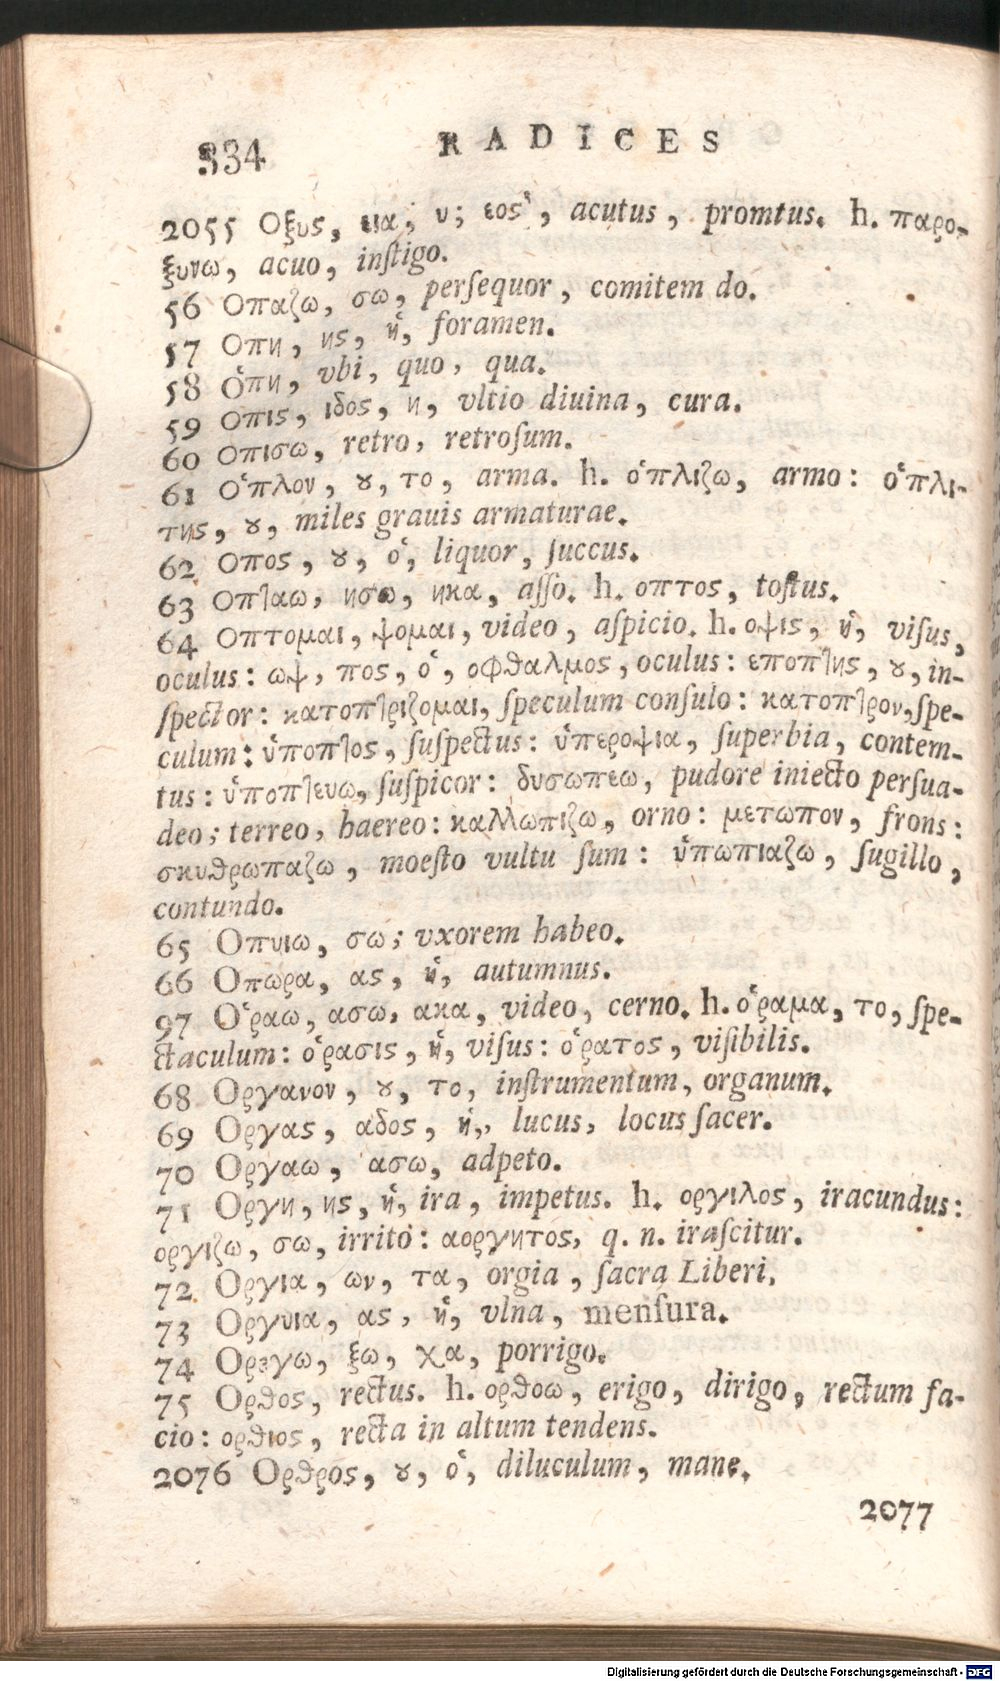 334 RADICES
2055 Οξυς, εια; υ; εος, acutus, promtus. h. παρο-
ξυνω, acuo, inſtigo.
56 Οπαζω, σω, perſequor, comitem do.
57 Οπη, ης, ἡ, foramen.
58 Ὁπη, vbi, quo, qua.
59 Οπις, ιδος, η, vltio diuina, cura.
60 Οπισω, retro, retroſum.
61 Ὁπλον, ȣ, το, arma. h. ὁπλιζω, armo: ὁπλι-
της, ȣ, miles grauis armaturae.
62 Οπος, ȣ, ὁ, liquor, ſuccus.
63 Οπταω, ησω, ηκα, aſſo. h. οπτος, toſtus.
64 Οπτομαι, ψομαι, video, aſpicio. h. οψις, ἡ, viſus,
oculus: ωψ, πος, ὁ, οφθαλμος, oculus: εποπτης, ȣ, in-
ſpector: κατοπτριζομαι, ſpeculum conſulo: κατοπτρον, ſpe-
culum: ὑποπτος, ſuſpectus: ὑπεροψια, ſuperbia, contem-
tus: ὑποπτευω, ſuſpicor: δυσωπεω, pudore iniecto perſua-
deo; terreo, haereo: καλλωπιζω, orno: μετωπον, frons:
σκυθρωπαζω, moeſto vultu ſum: ὑπωπιαζω, ſugillo,
contundo.
65 Οπυιω, σω; vxorem habeo.
66 Οπωρα, ας, ἡ, autumnus.
97 Ὁραω, ασω, ακα, video, cerno. h. ὁραμα, το, ſpe-
ctaculum: ὁρασις, ἡ, viſus: ὁρατος, viſibilis.
68 Οργανον, ȣ, το, inſtrumentum, organum.
69 Οργας, αδος, ἡ,, lucus, locus ſacer.
70 Οργαω, ασω, adpeto.
71 Οργη, ης, ἡ, ira, impetus. h. οργιλος, iracundus:
οργιζω, σω, irrito: αοργητος, q. n. iraſcitur.
72 Οργια, ων, τα, orgia, ſacra Liberi.
73 Οργυια, ας, ἡ, vlna, menſura.
74 Ορεγω, ξω, χα, porrigo.
75 Ορθος, rectus. h. ορθοω, erigo, dirigo, rectum fa-
cio: ορθιος, recta in altum tendens.
2076 Ορθρος, ȣ, ὁ, diluculum, mane.
2077
Digitalisierung gefördert durch die Deutsche Forschungsgemeinschaft - DFG